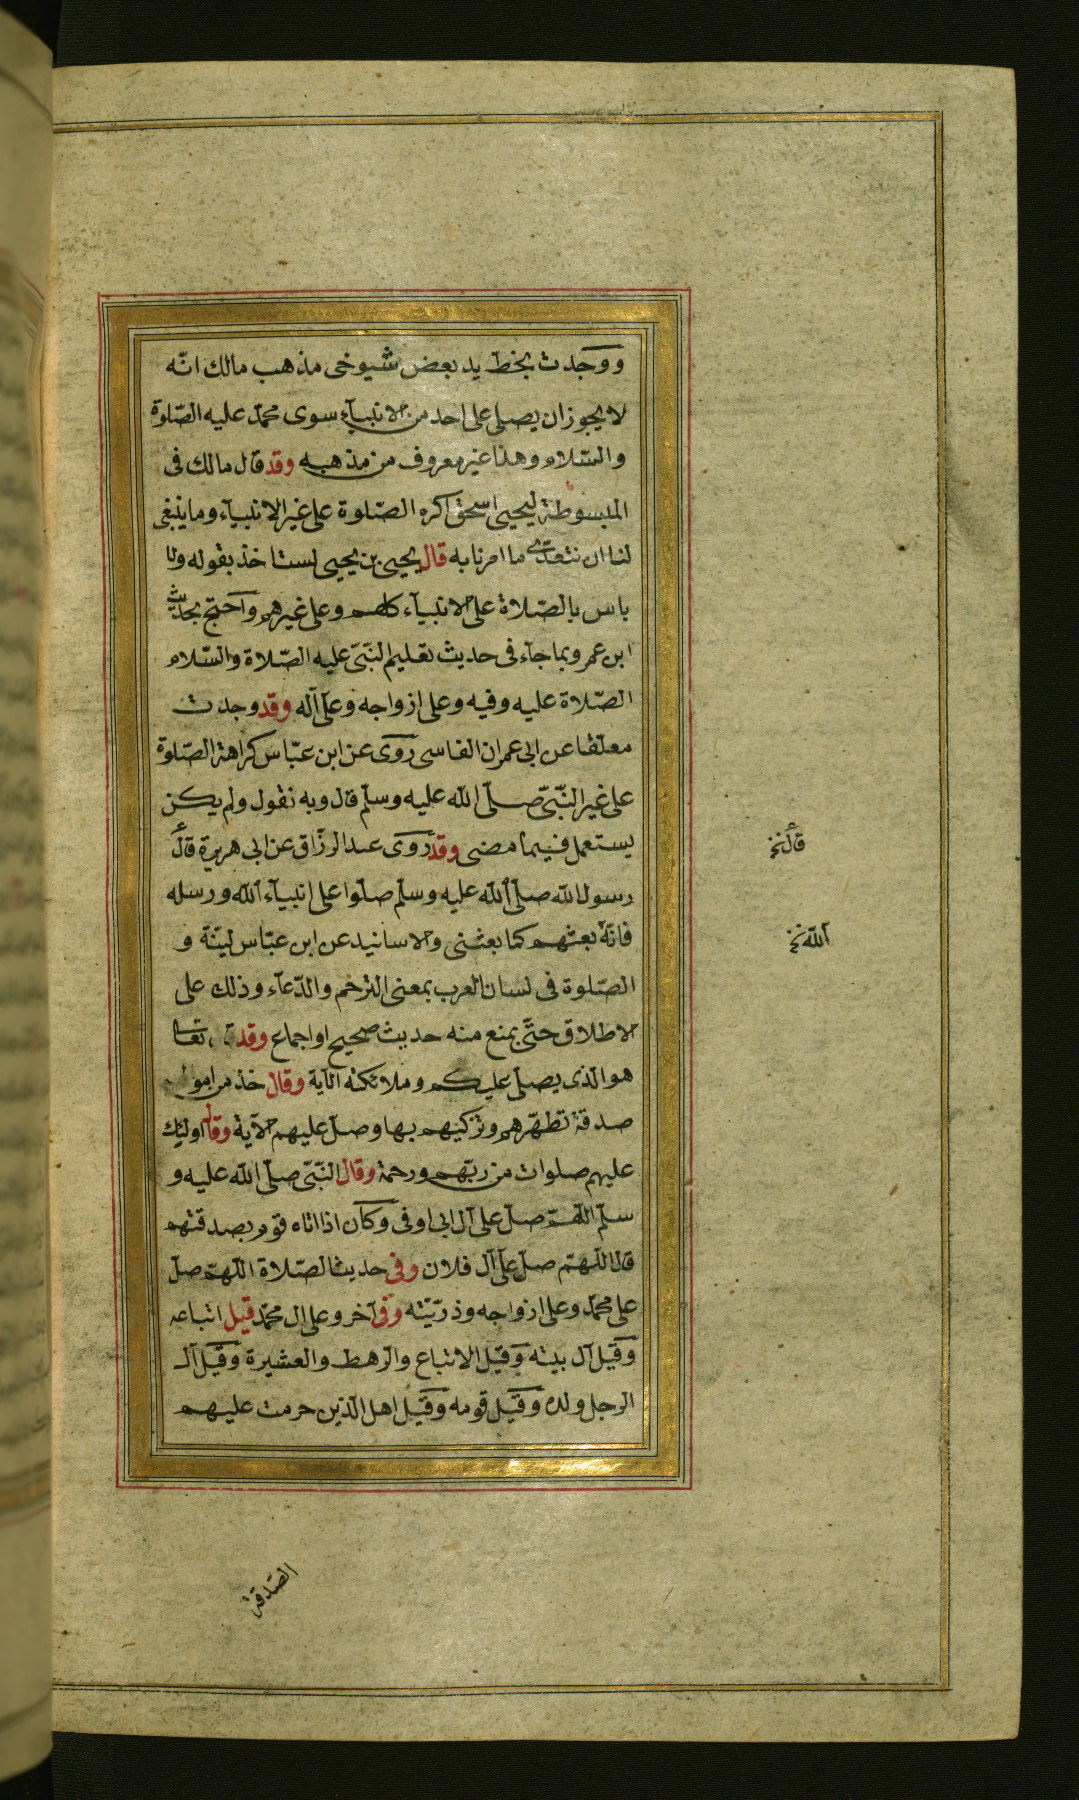 ووجدت بخط يد بعض شيوخى مذهب مالك انّه
لا يجوز ان يصلى على احد من الانبيآء سوى محمّد عليه الصّلوة
والسّلام وهذا غير معروف من مذهبه وقد قال مالك فى
المبسوطة ليحيى اسحق اكره الصّلوة على غير الانبيآء وما ينبغى
لنا ان نتعدّى ما امرنا به قال يحيى بن يحيى لست اخذ بقوله ولا
باس بالصّلاة على الانبيآء كلهم وعلى غيرهم واحتج بحديث
ابن عمر وبما جآء فى حديث تعليم النّبىّ عليه الصّلاة والسّلام
الصّلاة عليه وفيه وعلى ازواجه وعلى آله وقد وجدت
معلقا عن ابى عمران الفاسى روى عن ابن عبّاس كراهة الصّلوة
على غير النّبىّ صلّى الله عليه وسلّم قال وبه نقول ولم يكن
يستعمل فيما مضى وقد روى عبد الرزّاق عن ابى هريرة قال
رسول الله صلّى الله عليه وسلّم صلّوا على انبيآء الله ورسله
فانّه بعثهم كما بعثنى والاسانيد عن ابن عبّاس ليّنة و
الصّلوة فى لسان العرب بمعنى الترحّم والدّعآء وذلك على
الاطلاق حتّى يمنع منه حديث صحيح او اجماع وقد تعا
هو الذى يصلى عليكم وملائكته الآية وقال خذ من اموا
صدقة تطهّرهم وتزكيهم بها وصلّ عليهم الآية وقال اوليك
عليهم صلوات من ربّهم ورحمة وقال النّبىّ صلّى الله عليه و
سلّم اللّهمّ صلّ على آل ابى اوفى وكان اذا اتاه قوم بصدقتهم
قال اللّهمّ صلّ على آل فلان وفى حديث الصّلاة اللّهمّ صلّ
على محمّد وعلى ازواجه وذرّيّته وفى آخر وعلى ال محمّد قيل اتباعه
وقيل آل بيته وقيل الاتباع والرّهط والعشيرة وقيل آل
الرجل ولده وقيل قومه وقيل اهل الّذين حرمت عليهم
قال نخ
الله نخ
الصّدقة